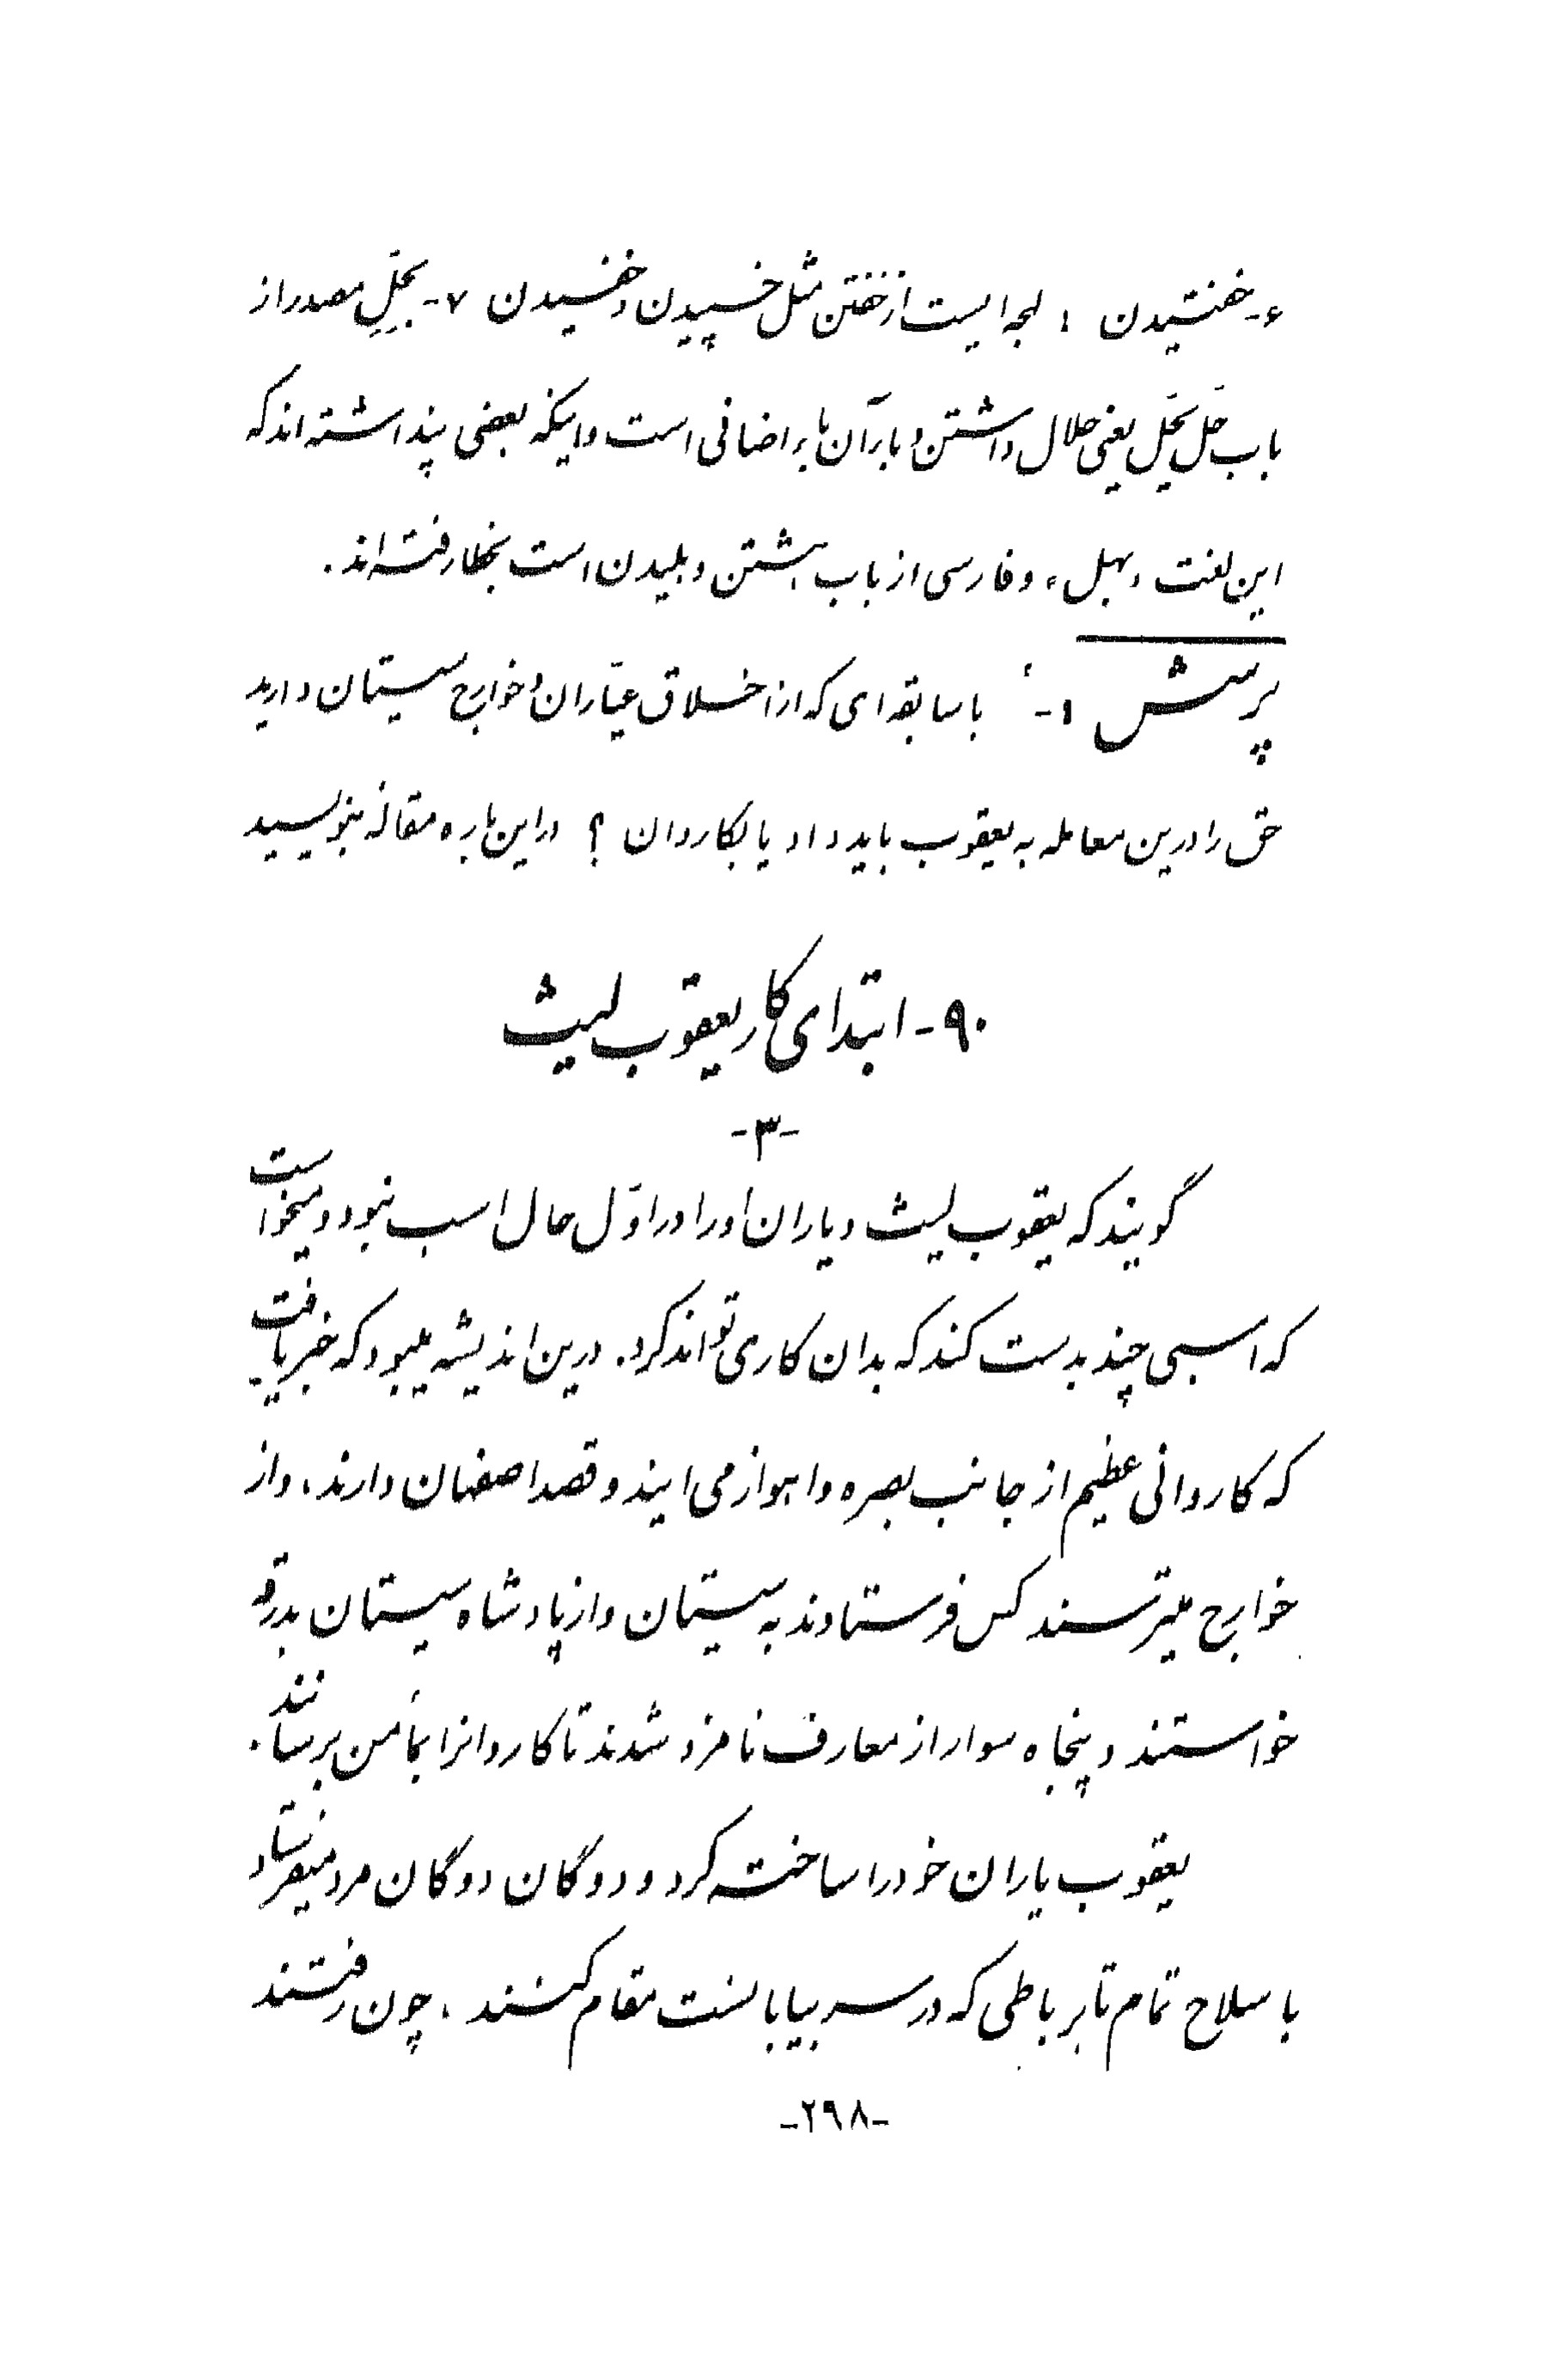 ۶- خفتیدن : لهجه ایست از خفتن مثل خسپیدن و خفسیدن ۷- بحَلِّ مصدر از
باب حَلَ یَحِل یعنی حلال داشتن و با بر آن باء اضافی است و اینکه بعضی پنداشته اند که
این لغت «بهل» و فارسی از باب هشتن و هلیدن است بخطا رفته‌اند.
پرسش ۱- با سابقه ای که از اخلاق عیّاران و خوارج سیستان دارید
حق را درین معامله به یعقوب باید داد یا بکاروان ؟ در این باره مقاله بنویسید
۹۰- ابتدای کار یعقوب لیث
-۳-
گویند که یعقوب لیث و یاران او را در اوّل حال اسب نبود و میخواست
که اسبی چند بدست کند که بدان کاری تواند کرد. درین اندیشه میبود که خبر یافت
که کاروانی عظیم از جانب بصره و اهواز می ایند و قصد اصفهان دارند، و از
خوارج میترسند کس فرستادند به سیستان و از پادشاه سیستان بدرقه
خواستند و پنجاه سوار از معارف نامزد شدند تا کاروانرا بمأمن برسانند.
یعقوب یاران خود را ساخته کرد و دوگان دوگان مرد میفرستاد
با سلاح تمام تا بر باطی که در سر بیابانست مقام کنند ، چون رفتند
-۲۹۸-